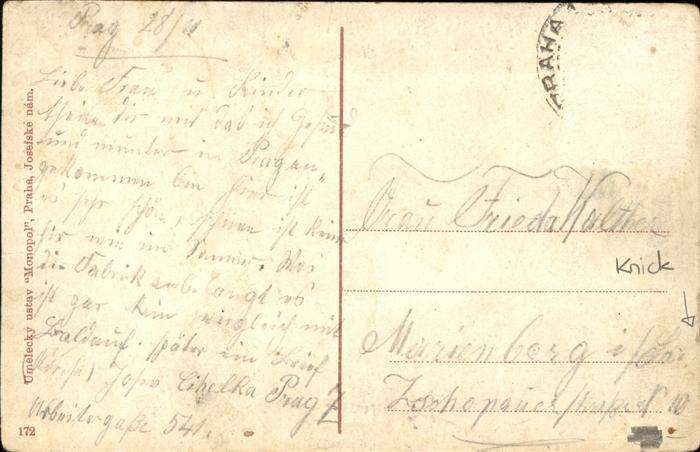 Prag 28/11
Liebe Frau u. Kinder
theile dir mit das ich Gesund
und munter in Prag an-
gekommen bin hier ist
es sehr schön, schnee ist keiner
hir wie im Sommer. Was
die Fabrik anbelangt es
ist gar kein vergleich mit
Baldauf. später ein Brief
Adreße Josef Cihelka Prag 7
Arbeitergaße 541.
Umělecký ústav "Monopol", Praha, Josefské nám.
172
PRAHA
Frau Frieda Walther
Knick
Marienberg i/
Zschopauer straße N 10